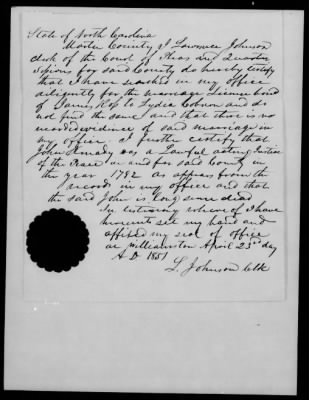 State of North Carolina
Martin County I Lawrence Johnson
clerk of the Court of Pleas and Quarter
Sessions for said County do hereby certify
that I have searched in my office
diligently for the marriage License bond
of James Rop to Lydia Cobron and do
not find the same and that there is no
record evidence of said marriage in
my office I further certify that
John Kenady was a Lawful acting Justice
of the Peace in and for said County in
the year 1782 as appears from the
records in my office and that
the said John is long since dead
In testimony whereof I have
hereunto set my hand and
affixed my seal of office
at Williamston April 23rd day
A D 1851
L. Johnson Clk